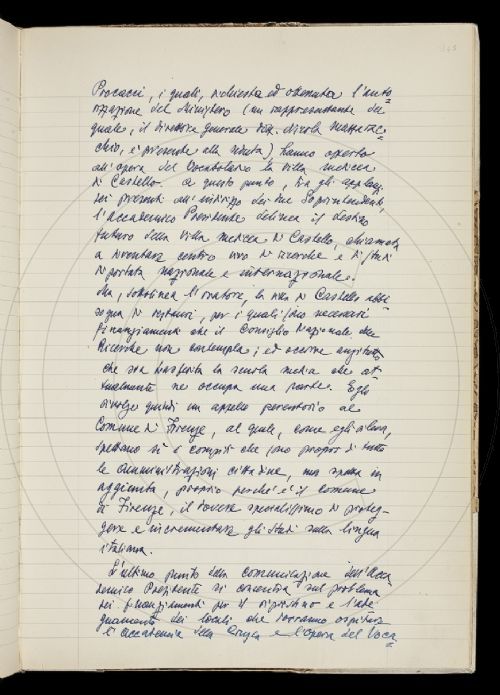 Procacci, i quali, richiesta ed ottenuta l'auto=
rizzazione del Ministero (un rappresentante del
quale, il direttore generale dep. Nicola
è presente alla seduta), hanno offerto
all'opera del Vocabolario la villa medicea
di Castello. A questo punto, tra gli applausi
dei presenti all'indirizzo dei due Soprintendenti,
l'accademico Presidente delinea il destino
futuro della villa medicea di Castello, chiamata
a diventare centro vivo di ricerche e di studi
di portata nazionale e internazionale.
Ma, sottolinea l'oratore, la villa di Castello abbi=
sogna di restauri, per i quali sono necessari
finanziamenti che il Consiglio Nazionale delle
Ricerche non contempla; ed occorre anzitutto
che sia trasferita la scuola media che at=
tualmente ne occupa una parte. Egli
rivolge quindi un appello perentorio al
Comune di Firenze, al quale, come egli rileva,
spettano sì i compiti che sono propri di tutte
le amministrazioni cittadine, ma spetta in
aggiunta, proprio perché è il comune
di Firenze, il dovere specialissimo di proteg=
gere e incrementare gli studi sulla lingua
italiana.
L'ultimo punto della comunicazione dell'Acca=
demico Presidente si concentra sul problema
dei finanziamenti per il ripristino e l'ade=
guamento dei locali che dovranno ospitare
l'Accademia della Crusca e l'Opera del Voca=